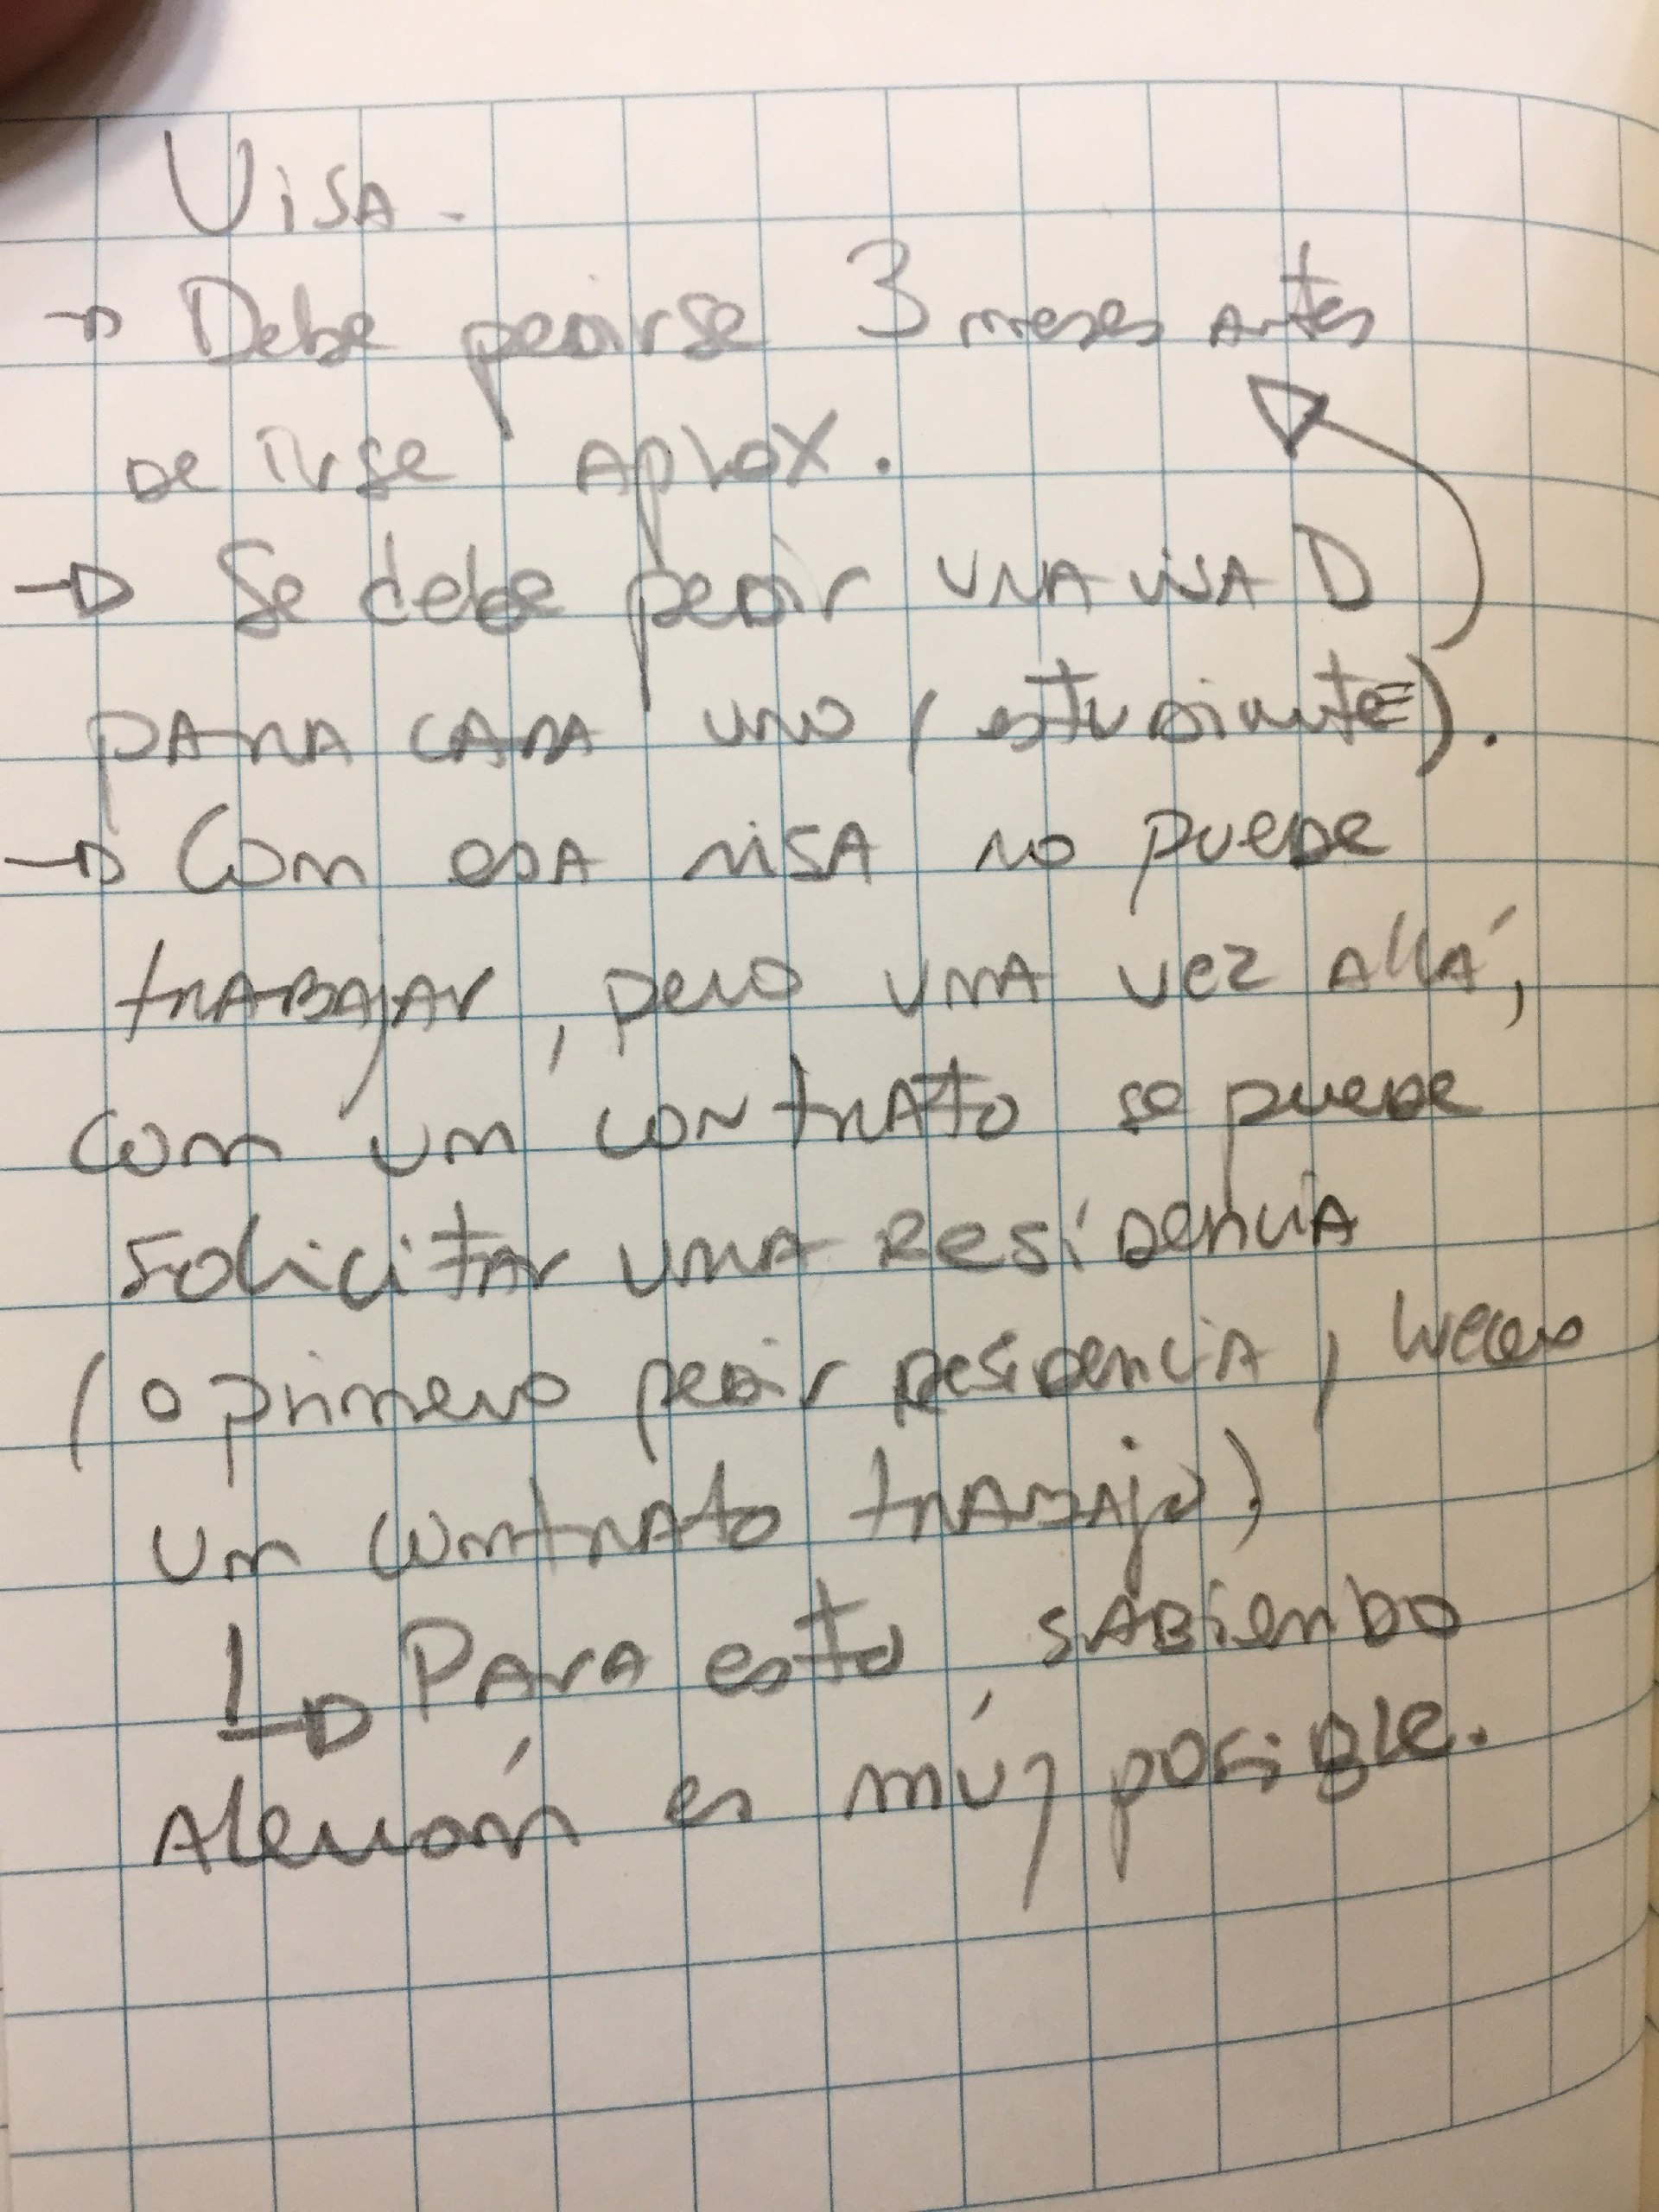 Visa.
→ Debe pedirse 3 meses antes
de irse aprox.
→ Se debe pedir una visa D
para cada uno (estudiante).
→ Com esa visa no puede
trabajar, pero una vez allá,
com un contrato se puede
solicitar una residencia
(o primero pedir residencia, luego
un contrato trabajo)
↳ Para esto sabiendo
Alemán es múy posible.